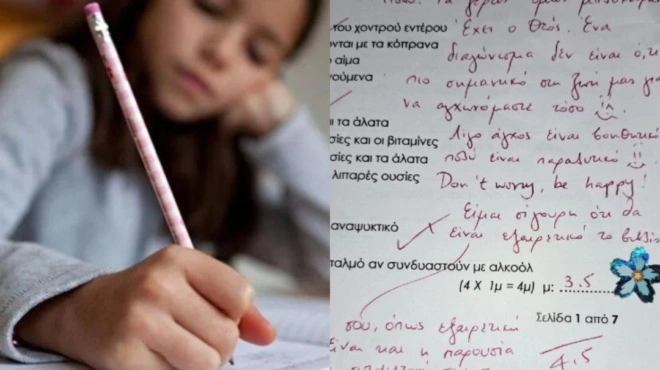 του χοντρού εντέρου Έχει ο Θεός. Ένα
νται με τα κόπρανα διαγώνισμα δεν είναι ό,τι
αίμα
ούμενα πιο σημαντικό στη ζωή μας για
να αγχωνόμαστε τόσο
ι τα άλατα
σίες και οι βιταμίνες Λίγο άγχος είναι βοηθητικό
σίες και τα άλατα πολύ είναι παραλυτικό
λιπαρές ουσίες Don't worry, be happy!
Είμαι σίγουρη ότι θα
αναψυκτικό είναι εξαιρετικό το
ταλμό αν συνδυαστούν με αλκοόλ
(4 Χ 1μ = 4μ) μ: 3.5
Σελίδα 1 από 7
σου, όπως εξαιρετική
είναι και η παρουσία 4.5